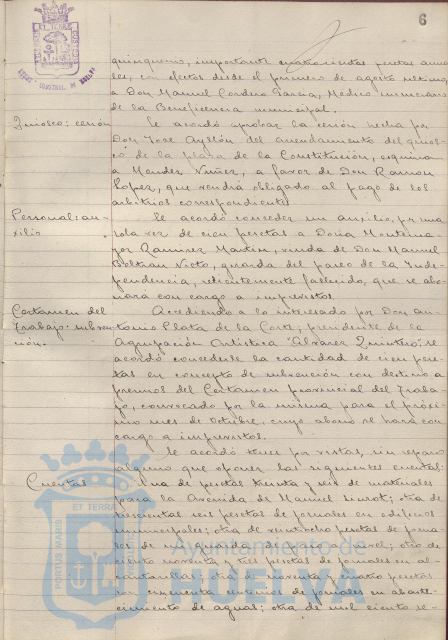 6
quinquenio, importante cuatrocientas pesetas anua
les, con efectos desde el primero de agosto último,
a Don Manuel Cordero García, Médico numerario
de la Beneficencia municipal.
Quiosco: cesión
Se acordó aprobar la cesión hecha por
Don José Ayllón del arrendamiento del quios
co de la plaza de la Constitución, esquina
a Mendez Nuñez, a favor de Don Ramon
Lopez, que vendrá obligado al pago de los
arbitrios correspondientes
Personal: au-
xilio
Se acordó conceder un auxilio, por una
sola vez de cien pesetas a Doña Montema-
yor Ramirez Martin, viuda de Don Manuel
Beltran Nieto, guarda del paseo de la Inde-
pendencia, recientemente fallecido, que se abo-
nará con cargo a imprevistos.
Certamen del
Trabajo: subven
ción.
Accediendo a lo interesado por Don An-
tonio Plata de la Corte, presidente de la
Agrupación Artística "Alvarez Quintero", se
acordó concederle la cantidad de cien pese-
tas en concepto de subvención con destino a
premios del Certamen provincial del Traba-
jo, convocado por la misma para el próxi-
mo mes de Octubre, cuyo abono se hará con
cargo a imprevistos.
Cuentas
Se acordó tener por vistas, sin reparo
alguno que oponer las siguientes cuentas:
Una de pesetas treinta y seis de materiales
para la Avenida de Manuel Siurot; otra de
trescientas seis pesetas de jornales en edificios
municipales; otra de veintiocho pesetas de jorna
les de un guarda de
ciento noventa y tres pesetas de jornales en al-
cantarillas; otra de noventa y cuatro pesetas
con cincuenta centimos de jornales en abaste-
cimiento de aguas; otra de mil ciento se-
Ayuntamiento de
HUELVA
PORTUS MARIS
ET TERRAE